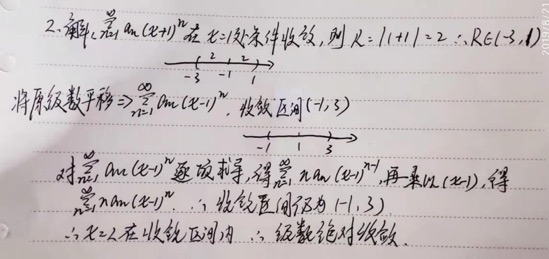 2.解:∑_{n=1}^{∞} an(x+1)^n 在 x=1处条件收敛,则 R=|1+1|=2 ∴R∈(-3,1)
2 2
-3 -1 1
将原级数平移⇒∑_{n=1}^{∞} an(x-1)^n,收敛区间(-1,3)
-1 1 3
对∑_{n=1}^{∞} an(x-1)^n 逐项求导,得∑_{n=1}^{∞} n an(x-1)^{n-1},再乘以(x-1),得
∑_{n=1}^{∞} n an(x-1)^n ∴收敛区间仍为(-1,3)
∴x=2在收敛区间内 ∴级数绝对收敛.
2019/8/21